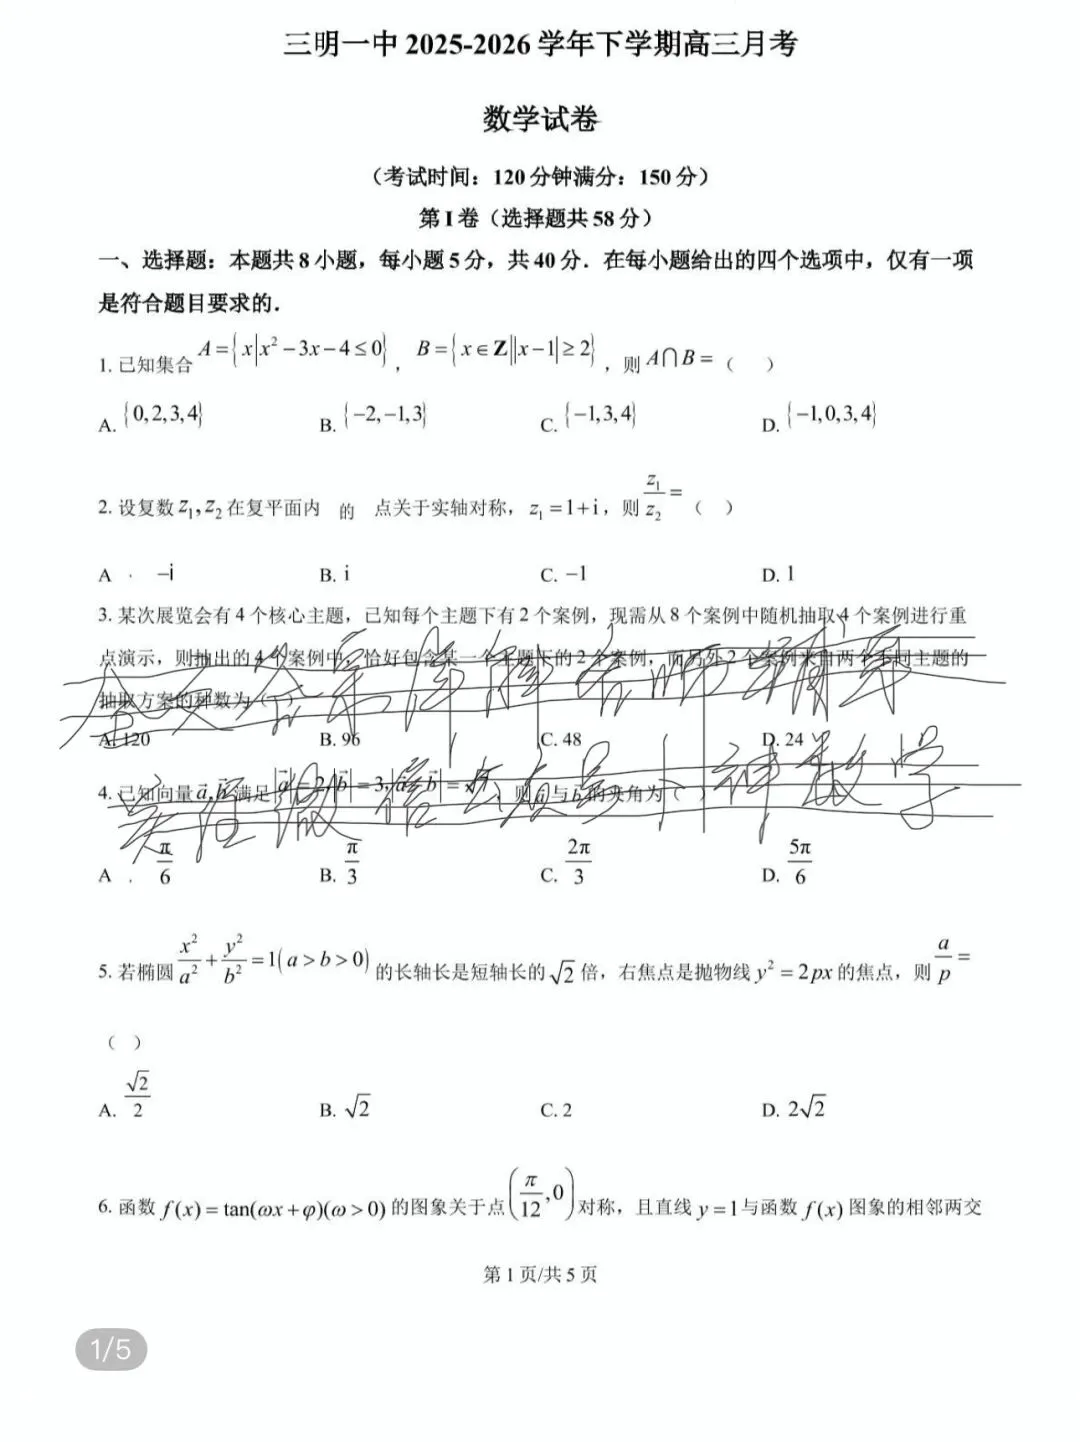 三明一中 2025-2026 学年下学期高三月考
数学试卷
（考试时间：120 分钟满分：150 分）
第 I 卷（选择题共 58 分）
一、选择题：本题共 8 小题，每小题 5 分，共 40 分．在每小题给出的四个选项中，仅有一项
是符合题目要求的．
1. 已知集合 A={x|x²−3x−4≤0}，B={x∈Z||x−1|≥2}，则 A∩B=（ ）
A. {0,2,3,4} B. {−2,−1,3} C. {−1,3,4} D. {−1,0,3,4}
2. 设复数 z₁,z₂ 在复平面内 的 点关于实轴对称，z₁=1+i，则 z₁/z₂=（ ）
A . −i B. i C. −1 D. 1
3. 某次展览会有 4 个核心主题，已知每个主题下有 2 个案例，现需从 8 个案例中随机抽取 4 个案例进行重
点演示，则抽出的 4 个案例中，恰好包含某一个主题下的 2 个案例，而另外 2 个案例来自两个不同主题的
抽取方案的种数为（ ）
A. 120 B. 96 C. 48 D. 24
4. 已知向量 a⃗,b⃗ 满足 |a⃗|=2,|b⃗|=3, 则 a⃗ 与 b⃗ 的夹角为（ ）
A . π/6 B. π/3 C. 2π/3 D. 5π/6
5. 若椭圆 x²/a²+y²/b²=1(a>b>0) 的长轴长是短轴长的 √2 倍，右焦点是抛物线 y²=2px 的焦点，则 a/p=
（ ）
A. √2/2 B. √2 C. 2 D. 2√2
6. 函数 f(x)=tan(ωx+φ)(ω>0) 的图象关于点 (π/12,0) 对称，且直线 y=1 与函数 f(x) 图象的相邻两交
第 1 页/共 5 页
1/5